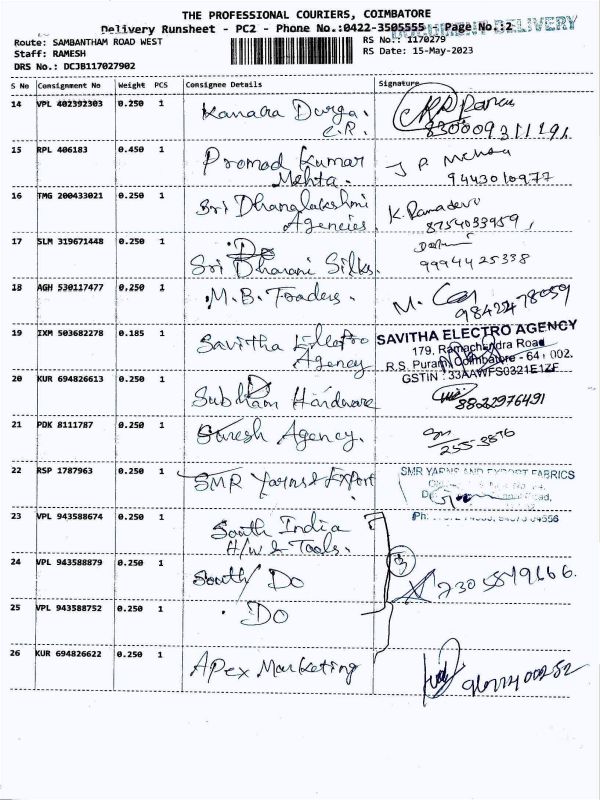 THE PROFESSIONAL COURIERS, COIMBATORE
Delivery Runsheet - PC2 - Phone No.:0422-3505555 Page No.:2
DOCUMENT DELIVERY
Route: SAMBANTHAM ROAD WEST
RS No.: 1170279
Staff: RAMESH
RS Date: 15-May-2023
DRS No.: DCJB117027902
S No Consignment No Weight PCS Consignee Details Signature
14 VPL 402392303 0.250 1 Kanara Durga.
C.R.
8300093111191
15 RPL 406183 0.450 1 Promod Kumar
Mehta.
J P Mehta
9443010977
16 TMG 200433021 0.250 1 Sri Dhanalakshmi
Agencies.
K. Ramadevi
8754033959,
17 SLM 319671448 0.250 1 Do
Sri Dharani Silks.
9994425338
18 AGH 530117477 0.250 1 M.B. Traders.
M.
9842478059
19 IXM 503682278 0.185 1 Savitha Electro
Agency
SAVITHA ELECTRO AGENCY
179, Ramachandra Road
R.S. Puram, Coimbatore - 641 002.
GSTIN : 33AAWFS0321E1ZF
20 KUR 694826613 0.250 1 Subham Hardware
8822976491
21 PDK 8111787 0.250 1 Suresh Agency.
2553876
22 RSP 1787963 0.250 1 SMR Yarns & Export
SMR YARNS AND EXPORT FABRICS
Road,
Ph:
23 VPL 943588674 0.250 1 South India
H/w & Tools.
24 VPL 943588879 0.250 1 South Do
3
7305819666.
25 VPL 943588752 0.250 1 Do
26 KUR 694826622 0.250 1 Apex Marketing